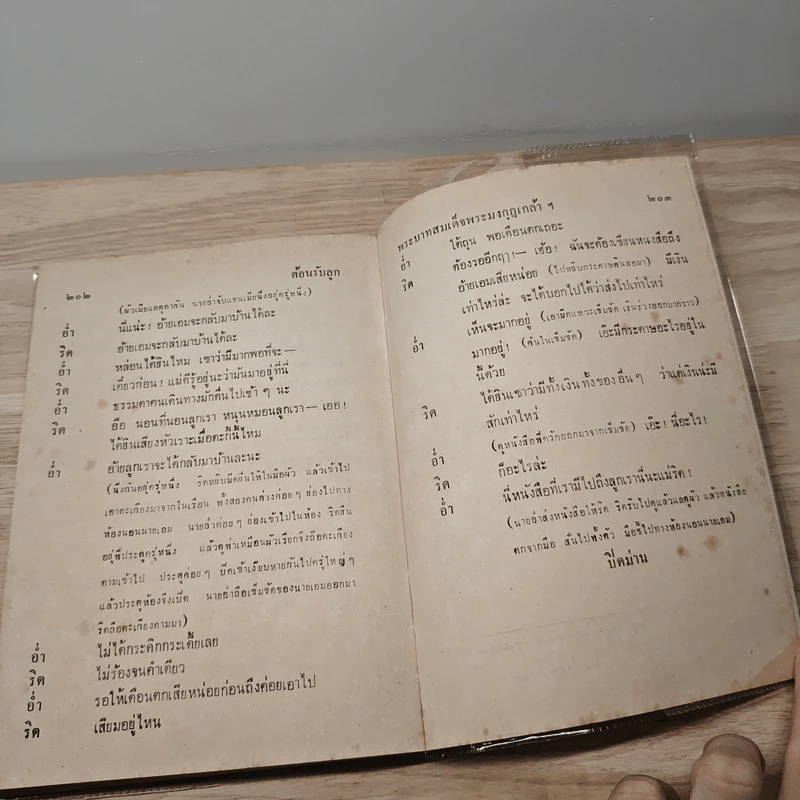 ๒๐๒
ต้อนรับลูก
(ผัวเมียแลดูตากัน นายอ่ำจับแขนเมียนิ่งอยู่ครู่หนึ่ง)
อ่ำ นี่แน่ะ! อ้ายเอมจะกลับมาบ้านได้ละ
ริด อ้ายเอมจะกลับมาบ้านได้ละ
อ่ำ หล่อนได้ยินไหม เขาว่ามีมากพอที่จะ—
ริด เดี๋ยวก่อน! แม่ดีรู้อยู่นะว่ามันมาอยู่ที่นี่
อ่ำ ธรรมดาคนเดินทางมักตื่นไปเช้า ๆ นะ
ริด ฮือ นอนที่นอนลูกเรา หนุนหมอนลูกเรา— เออ!
ได้ยินเสียงหัวเราะเมื่อตะกี้นี้ไหม
อ่ำ อ้ายลูกเราจะได้กลับมาบ้านละนะ
(นิ่งกันอยู่ครู่หนึ่ง ริดหยิบมีดยื่นให้ในมือผัว แล้วเข้าไป
เอาตะเกียงมาจากในเรือน ทั้งสองคนต่างค่อย ๆ ย่องไปทาง
ห้องนอนนายเอม นายอ่ำค่อย ๆ ย่องเข้าไปในห้อง ริดยืน
อยู่ที่ประตูครู่หนึ่ง แล้วดูท่าเหมือนผัวเรียกจึงถือตะเกียง
ตามเข้าไป ประตูค่อย ๆ ปิดเข้าเงียบหายกันไปครู่ใหญ่ ๆ
แล้วประตูห้องจึงเปิด นายอ่ำถือเข็มขัดของนายเอมออกมา
ริดถือตะเกียงตามมา)
อ่ำ ไม่ได้กระดิกกระเดี้ยเลย
ริด ไม่ร้องจนคำเดียว
อ่ำ รอให้เดือนตกเสียหน่อยก่อนถึงค่อยเอาไป
ริด เสียมอยู่ไหน
พระบาทสมเด็จพระมงกุฎเกล้า ฯ
๒๐๓
อ่ำ ใต้ถุน พอเดือนตกเถอะ
ริด ต้องรออีกฤๅ!— เฮ้อ! ฉันจะต้องเขียนหนังสือถึง
อ้ายเอมเสียหน่อย (ไปหยิบกระดาษดินสอมา) มีเงิน
เท่าไหร่ล่ะ จะได้บอกไปได้ว่าส่งไปเท่าไหร่
อ่ำ เห็นจะมากอยู่ (เอามีดแหวะเข็มขัด เงินร่วงออกมากราว)
มากอยู่! (ค้นในเข็มขัด) เอ๊ะมีกระดาษอะไรอยู่ใน
นี้ด้วย
ริด ได้ยินเขาว่ามีทั้งเงินทั้งของอื่น ๆ ว่าแต่เงินน่ะมี
สักเท่าไหร่
อ่ำ (ดูหนังสือที่ควักออกมาจากเข็มขัด) เอ๊ะ! นี่อะไร!
ริด ก็อะไรล่ะ
อ่ำ นี่หนังสือที่เรามีไปถึงลูกเรานี่นะแม่ริด!
(นายอ่ำส่งหนังสือให้ริด ริดรับไปดูแล้วแลดูผัว แล้วหนังสือ
ตกจากมือ สั่นไปทั้งตัว มือชี้ไปทางห้องนอนนายเอม)
ปิดม่าน